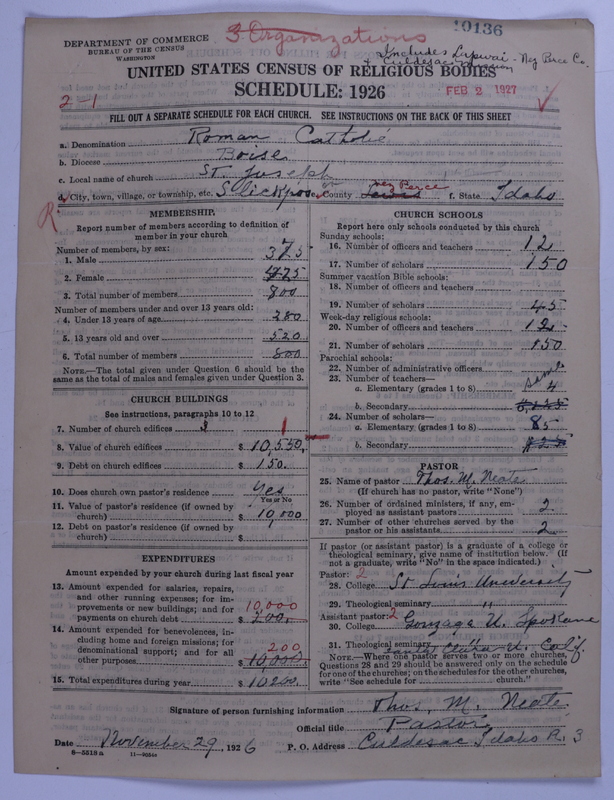 3 Organizations
10136
DEPARTMENT OF COMMERCE
BUREAU OF THE CENSUS
WASHINGTON
Includes Lapwai - Nez Perce Co.
+ Culdesac
UNITED STATES CENSUS OF RELIGIOUS BODIES
SCHEDULE: 1926
FEB 2 1927
2-1
FILL OUT A SEPARATE SCHEDULE FOR EACH CHURCH. SEE INSTRUCTIONS ON THE BACK OF THIS SHEET
a. Denomination Roman Catholic
b. Diocese Boise
c. Local name of church St. Joseph
d. City, town, village, or township, etc. Slickpoo e. County Lewis or Nez Perce f. State Idaho
R
MEMBERSHIP.
Report number of members according to definition of
member in your church
Number of members, by sex:
1. Male 375
2. Female 425
3. Total number of members 800
Number of members under and over 13 years old:
4. Under 13 years of age 280
5. 13 years old and over 520
6. Total number of members 800
NOTE.—The total given under Question 6 should be the
same as the total of males and females given under Question 3.
CHURCH BUILDINGS
See instructions, paragraphs 10 to 12
7. Number of church edifices 3 1
8. Value of church edifices $ 10,550.
9. Debt on church edifices $ 150.
10. Does church own pastor's residence Yes
Yes or No
11. Value of pastor's residence (if owned by
church) $ 10,000
12. Debt on pastor's residence (if owned by
church) $
EXPENDITURES
Amount expended by your church during last fiscal year
13. Amount expended for salaries, repairs,
and other running expenses; for im-
provements or new buildings; and for
payments on church debt $ 200. 10,000
14. Amount expended for benevolences, in-
cluding home and foreign missions; for
denominational support; and for all
other purposes $ 10,000 200
15. Total expenditures during year $ 10200.
CHURCH SCHOOLS
Report here only schools conducted by this church
Sunday schools:
16. Number of officers and teachers 12
17. Number of scholars 150
Summer vacation Bible schools:
18. Number of officers and teachers
19. Number of scholars 45
Week-day religious schools:
20. Number of officers and teachers 12
21. Number of scholars 150
Parochial schools:
22. Number of administrative officers same
23. Number of teachers—
a. Elementary (grades 1 to 8) 4
b. Secondary
24. Number of scholars—
a. Elementary (grades 1 to 8) 85
b. Secondary
PASTOR
25. Name of pastor Thos. M. Neate
(If church has no pastor, write "None")
26. Number of ordained ministers, if any, em-
ployed as assistant pastors 2
27. Number of other churches served by the
pastor or his assistants 2
If pastor (or assistant pastor) is a graduate of a college or
theological seminary, give name of institution below. (If
not a graduate, write "No" in the space indicated.)
Pastor: 2
28. College St Louis University
29. Theological seminary "
Assistant pastor: 2
30. College Gonzaga U. Spokane
31. Theological seminary Santa Clara U. Calif.
NOTE.—Where one pastor serves two or more churches,
Questions 28 and 29 should be answered only on the schedule
for one of the churches; on the schedules for the other churches,
write "See schedule for church."
Signature of person furnishing information Thos. M. Neate
Official title Pastor
Date November 29, 1926 P. O. Address Culdesac Idaho R. 3
8-5518a